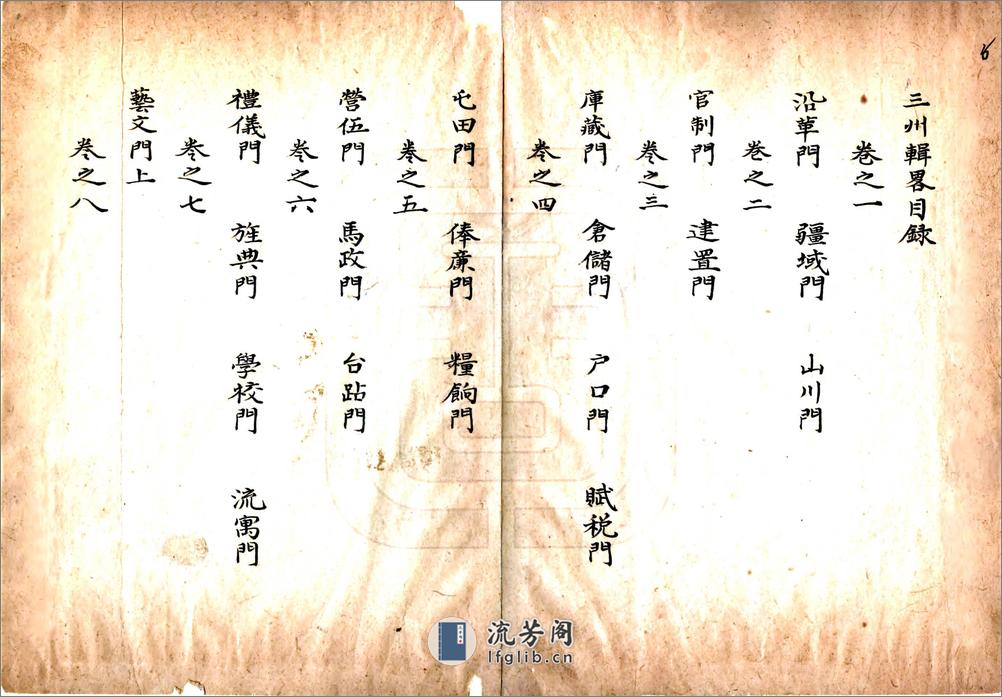 三州輯畧目録
卷之一
沿革門 疆域門 山川門
卷之二
官制門 建置門
卷之三
庫藏門 倉儲門 户口門 賦税門
卷之四
屯田門 俸廉門 糧餉門
卷之五
營伍門 馬政門 台跕門
卷之六
禮儀門 旌典門 學校門 流寓門
卷之七
藝文門上
卷之八
流芳阁
lfglib.cn